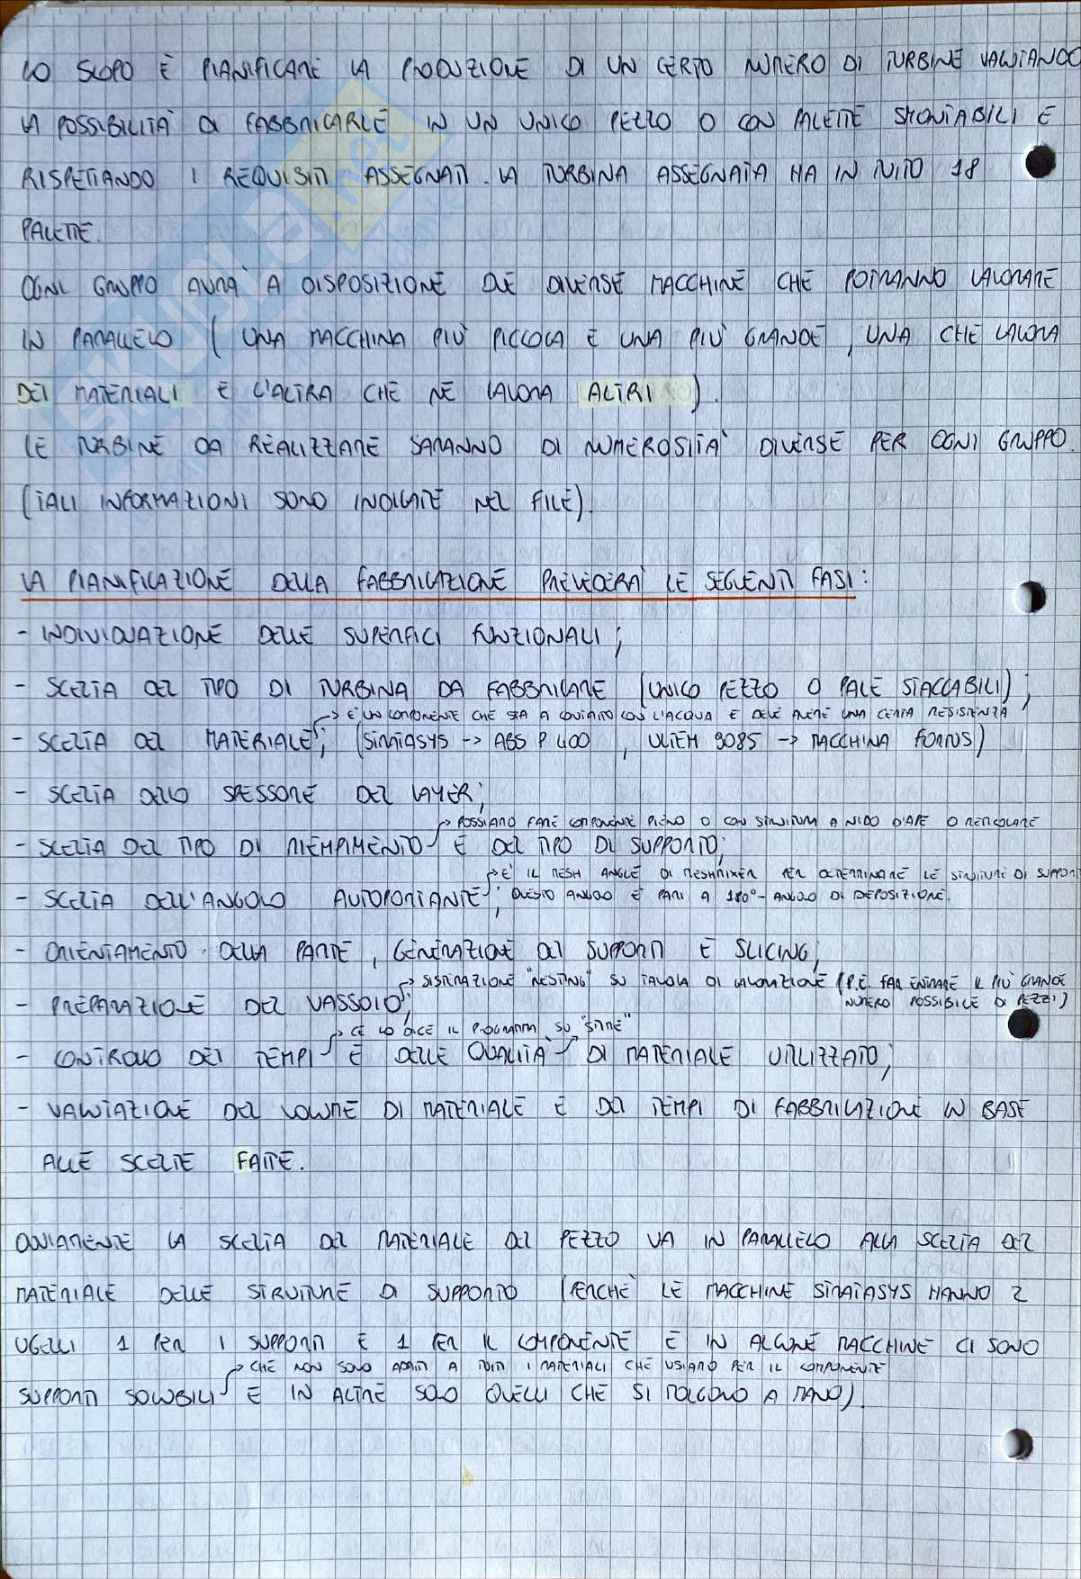 LO SCOPO È PIANIFICARE LA PRODUZIONE DI UN CERTO NUMERO DI TURBINE VALUTANDO
LA POSSIBILITÀ DI FABBRICARLE IN UN UNICO PEZZO O CON PALETTE SMONTABILI E
RISPETTANDO I REQUISITI ASSEGNATI. LA TURBINA ASSEGNATA HA IN TUTTO 18
PALETTE.
OGNI GRUPPO AVRÀ A DISPOSIZIONE DUE DIVERSE MACCHINE CHE POTRANNO LAVORARE
IN PARALLELO (UNA MACCHINA PIÙ PICCOLA E UNA PIÙ GRANDE, UNA CHE LAVORA
DEI MATERIALI E L'ALTRA CHE NE LAVORA ALTRI).
LE TURBINE DA REALIZZARE SARANNO DI NUMEROSITÀ DIVERSE PER OGNI GRUPPO.
(TALI INFORMAZIONI SONO INDICATE NEL FILE).
LA PIANIFICAZIONE DELLA FABBRICAZIONE PREVEDERÀ LE SEGUENTI FASI:
- INDIVIDUAZIONE DELLE SUPERFICI FUNZIONALI;
- SCELTA DEL TIPO DI TURBINA DA FABBRICARE (UNICO PEZZO O PALE STACCABILI);
→ È UN COMPONENTE CHE STA A CONTATTO CON L'ACQUA E DEVE AVERE UNA CERTA RESISTENZA
- SCELTA DEL MATERIALE; (STRATASYS -> ABS P 400, ULTEM 9085 -> MACCHINA FORTUS)
- SCELTA DELLO SPESSORE DEL LAYER;
→ POSSIAMO FARE COMPONENTE PIENO O CON STRUTTURA A NIDO D'APE O RETICOLARE
- SCELTA DEL TIPO DI RIEMPIMENTO E DEL TIPO DI SUPPORTO;
→ È IL MESH ANGLE DI MESHMIXER PER DETERMINARE LE STRUTTURE DI SUPPORTO
- SCELTA DELL'ANGOLO AUTOPORTANTE; QUESTO ANGOLO È PARI A 180° - ANGOLO DI DEPOSIZIONE.
- ORIENTAMENTO DELLA PARTE, GENERAZIONE DEI SUPPORTI E SLICING;
→ SISTEMAZIONE "NESTING" SU TAVOLA DI LAVORAZIONE (P.E. FAR ENTRARE IL PIÙ GRANDE
- PREPARAZIONE DEL VASSOIO; NUMERO POSSIBILE DI PEZZI)
→ CE LO DICE IL PROGRAMMA SU
- CONTROLLO DEI TEMPI E DELLE QUALITÀ DI MATERIALE UTILIZZATO;
- VALUTAZIONE DEL VOLUME DI MATERIALE E DEI TEMPI DI FABBRICAZIONE IN BASE
ALLE SCELTE FATTE.
OVVIAMENTE LA SCELTA DEL MATERIALE DEL PEZZO VA IN PARALLELO ALLA SCELTA DEL
MATERIALE DELLE STRUTTURE DI SUPPORTO (PERCHÈ LE MACCHINE STRATASYS HANNO 2
UGELLI 1 PER I SUPPORTI E 1 PER IL COMPONENTE E IN ALCUNE MACCHINE CI SONO
→ CHE NON SONO ADATTI A TUTTI I MATERIALI CHE USIAMO PER IL COMPONENTE
SUPPORTI SOLUBILI E IN ALTRE SOLO QUELLI CHE SI TOLGONO A MANO).